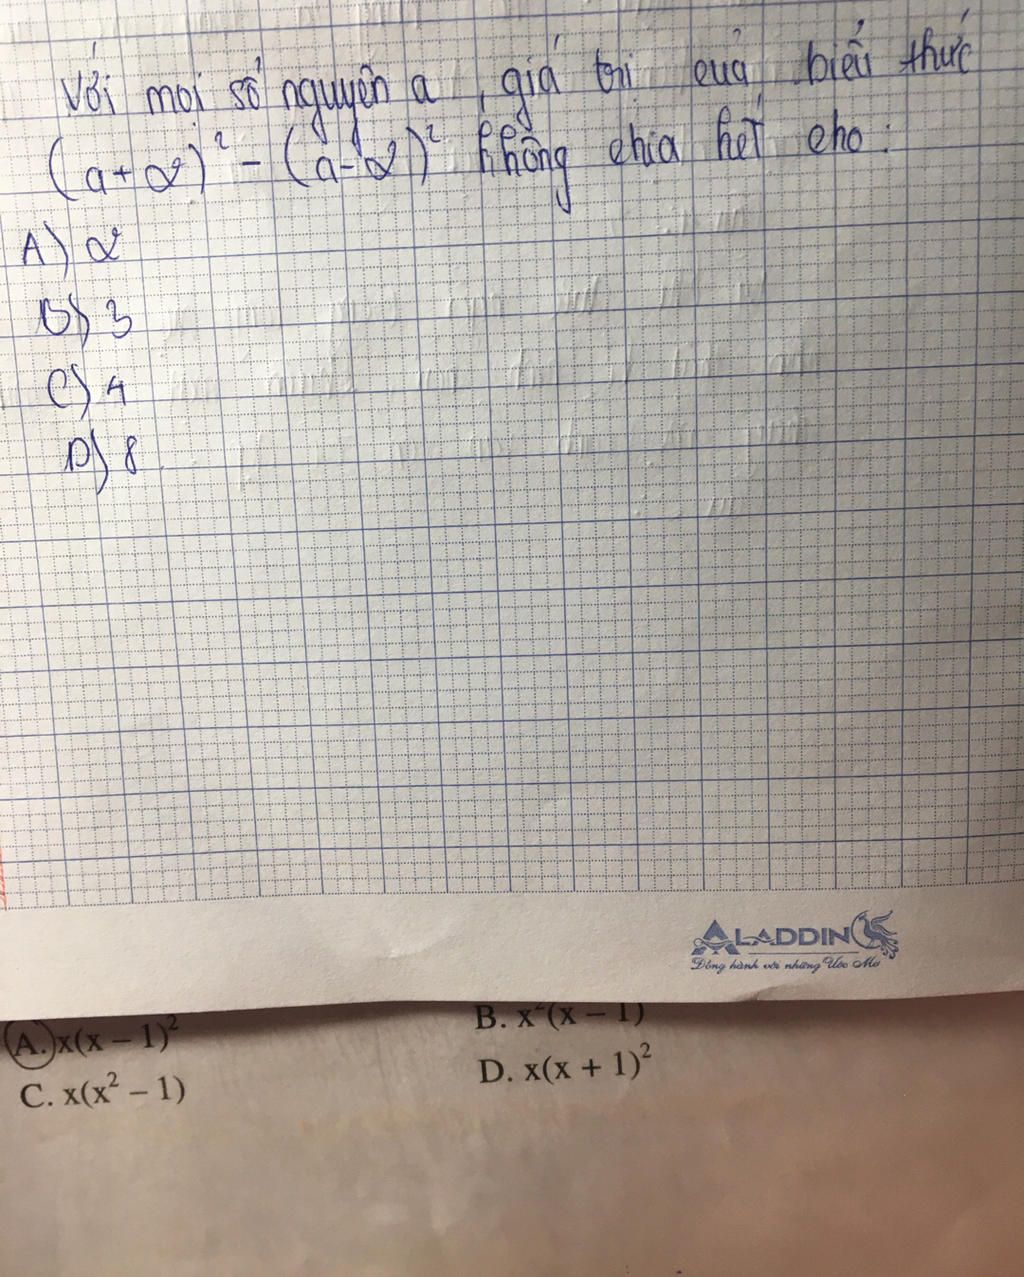 Với mọi số nguyên a, giá trị của biểu thức
(a+2)² - (a-2)² không chia hết cho:
A) 2
B) 3
C) 4
D) 8
ALADDIN
Đồng hành với những Ước Mơ
A. x(x – 1)²
B. x²(x – 1)
C. x(x² – 1)
D. x(x + 1)²